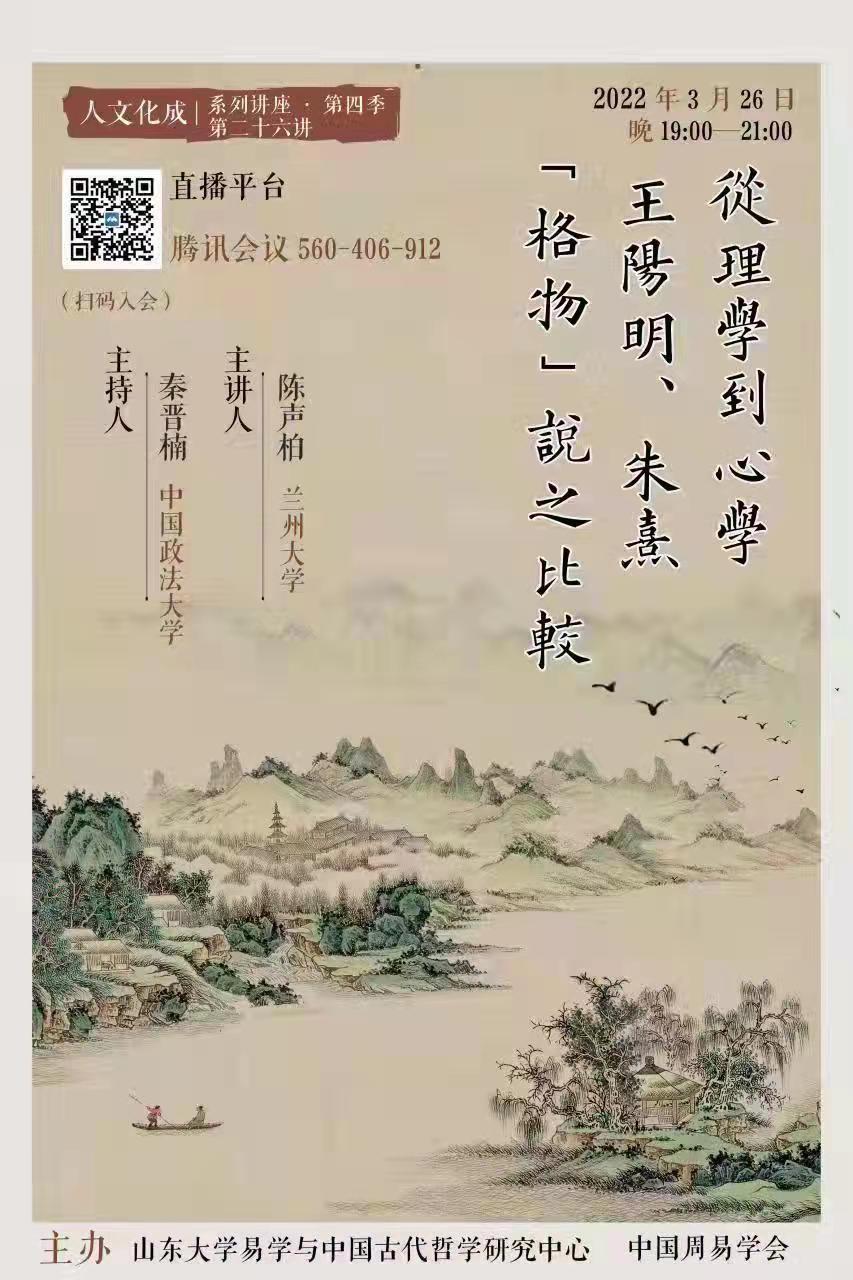 人文化成
系列讲座·第四季
第二十六讲
2022 年 3 月 26 日
晚 19:00—21:00
直播平台
腾讯会议 560-406-912
（扫码入会）
從理學到心學
王陽明、朱熹
「格物」說之比較
主讲人
陈声柏 兰州大学
主持人
秦晋楠 中国政法大学
主办 山东大学易学与中国古代哲学研究中心 中国周易学会